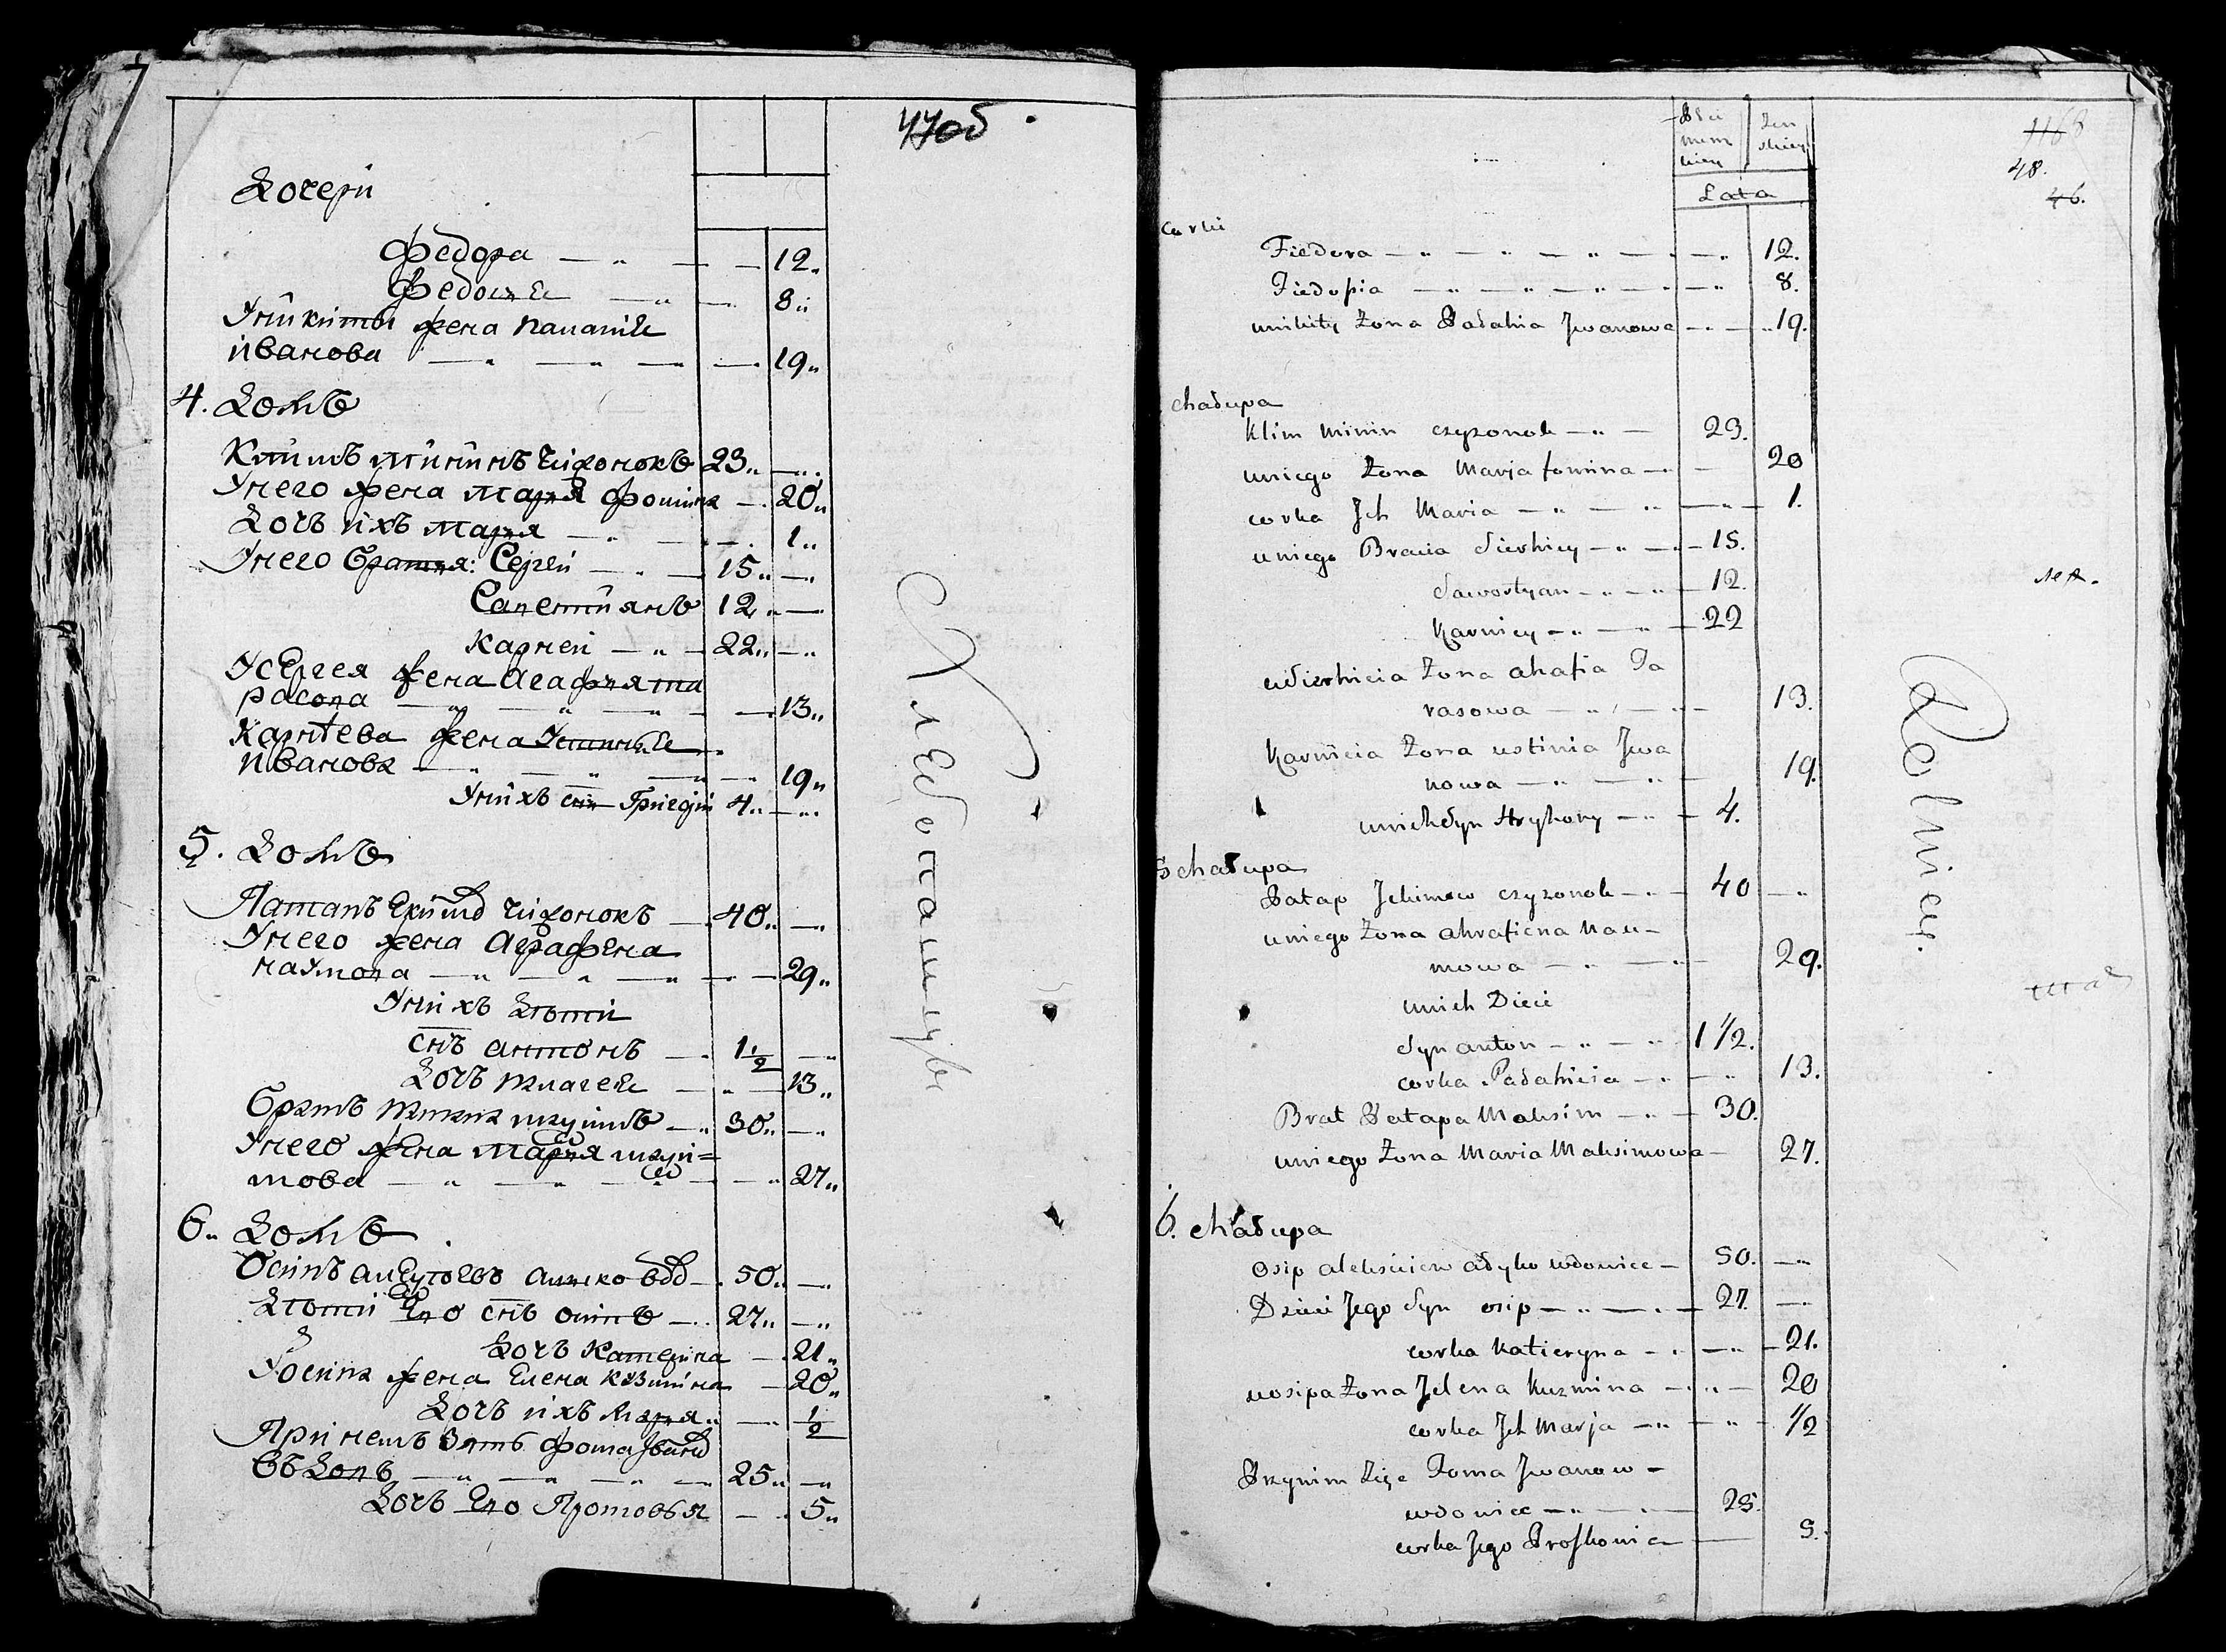 47об
Дочери
Федора — „ — — 12„
Федосья — „ — 8„
У никиты жена палагия
иванова — „ — „ — — 19„
4. Домъ
Климъ мининъ чижонокъ 23„ —„
У него жена марья фомина — 20„
Дочь ихъ марья — „ — 1„
У него братья: Сергей — „ — 15„ —„
Савестиянъ 12„ —
карней — „ — 22„ —„
У Сергея жена агафья та
расова — „ — „ — „ — 13„
Карнѣева жена Устинья
иванова — „ — „ — „ — 19„
У нихъ сынъ Григорий 4„ —„
5. Домъ
Патапъ Екимовъ чижонокъ — 40„ —„
У него жена Аграфена
наумова — „ — „ — „ — 29„
У нихъ Дѣти
сынъ антонъ — 1 1/2 —„
Дочь палагея — „ — 13„
Братъ
30„ —„
У него жена Марья макси=
мова — „ — „ — „ — 27„
6„ Домъ
Осипъ алексѣевъ алыко вдов — 50„ —„
Дѣти Его сынъ осипъ — 27„ —„
Дочь Катерина — 21„
У осипа жена Елена кузмина — 20„
Дочь ихъ марья„ — 1/2
Приемъ зять фома Иванов
вдовъ — „ — „ — „ — 25„ —„
Дочь Его Просковья — 5„
Хлебопашцы
Męz
Zen
skiey
Lata
48.
46.
corki
Fiedora — „ — „ — „ — — „ 12.
Fiedosia — „ — „ — „ — — „ 8.
unikity Zona Pałahia Jwanowa — „ 19.
chałupa
Klim Minin czyzonok — „ — 23.
uniego Zona Marja fomina — — 20
corka Jch Maria — „ — „ — „ — 1.
uniego Bracia Sierhiey — „ — 15.
Sawostyan — „ — „ — 12.
Karniey — „ — „ — 22
uSierhieia Zona ahafia Ta
rasowa — „ — „ — 13.
Karnieia Zona ustinia Jwa
nowa — „ — „ — 19.
unich Syn Hryhory — „ — 4.
5 chałupa
Patap Jekimow czyzonok — „ — 40 — „
uniego Zona ahrafiena Nau–
mowa — „ — „ — 29.
unich Dieci
Syn anton — „ — „ 1 1/2.
corka Pałahieia — „ — „ 13.
Brat Patapa Maksim — „ — 30.
uniego Zona Maria Maksimowa — 27.
6. chałupa
Osip aleksieiew ałyko wdowiec — 50. — „
Dzieci Jego Syn osip — „ — „ — 27. — „
corka Katieryna — „ — „ — 21.
uosipa Zona Jelena Kuzmina — „ — 20
corka Jch Marja — „ — „ — 1/2
Przyim Zięc Foma Jwanow –
wdowiec — „ — 25.
corka Jego Proskowia — 5.
Rolnicy.